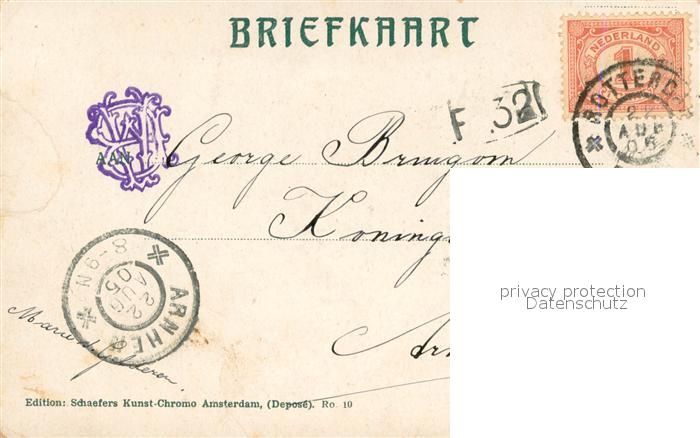 BRIEFKAART
NEDERLAND
1
ROTTERD
AUG
05
F 32
AAN
George Bruigom
Koning
Arn
privacy protection
Datenschutz
ARNHEM
8-9N
22
AUG
05
Marie d. Gelderen.
Edition: Schaefers Kunst-Chromo Amsterdam, (Deposé). Ro. 10